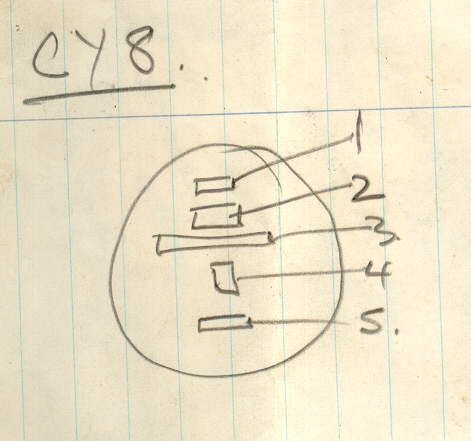 CY8.
1
2
3.
4
5.